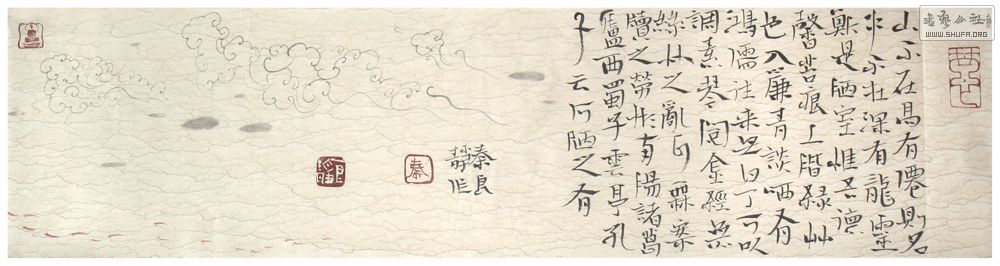 山不在高有僊則名
水不在深有龍靈
斯是陋室惟吾德
馨苔痕上階緑艸
色入簾青談咲有
鴻儒往來無白丁可以
調素琴閱金經無
絲竹之亂耳無案
牘之勞形南陽諸葛
廬西蜀子雲亭孔
子云何陋之有
秦良
靜作
秦
書藝公社
WWW.SHUFA.ORG